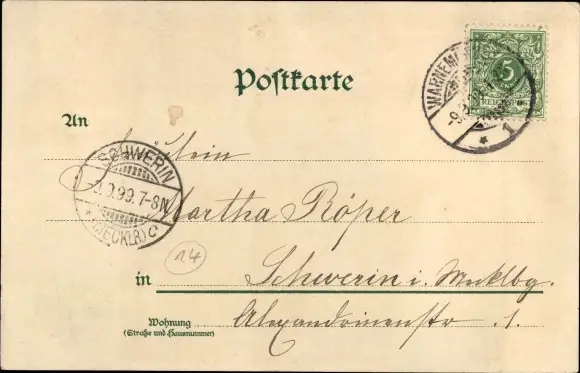 Postkarte
5
REICHSPOST
WARNEM
1
An
Fräulein
SCHWERIN
9.99. 7-8N
(MECKLB) c
Martha Röper
14
in Schwerin i. Mklbg.
Wohnung
(Straße und Hausnummer)
Alexandrinenstr. 1.